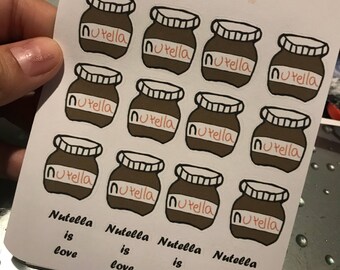 nutella nutella nutella nutella
nutella nutella nutella nutella
nutella nutella nutella nutella
Nutella Nutella Nutella Nutella
is is is
love love